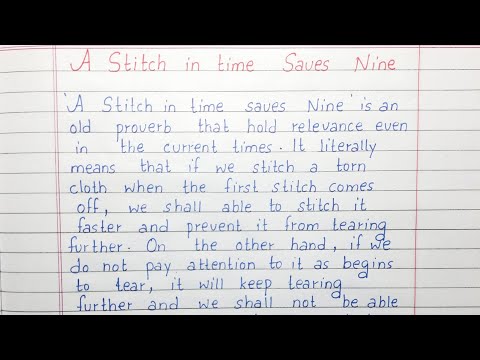 A Stitch in time Saves Nine
'A Stitch in time saves Nine' is an
old proverb that hold relevance even
in the current times. It literally
means that if we stitch a torn
cloth when the first stitch comes
off, we shall able to stitch it
faster and prevent it from tearing
further. On the other hand, if we
do not pay attention to it as begins
to tear, it will keep tearing
further and we shall not be able